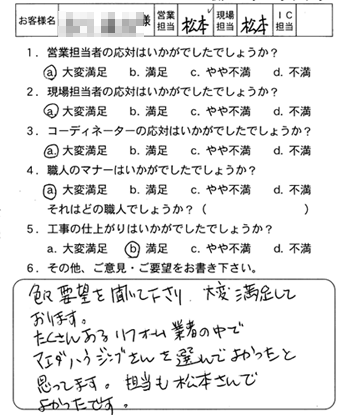 お客様名 様 営業担当 松本 現場担当 松本 IC担当
1．営業担当者の応対はいかがでしたでしょうか？
a 大変満足 b. 満足 c. やや不満 d. 不満
2．現場担当者の応対はいかがでしたでしょうか？
a. 大変満足 b. 満足 c. やや不満 d. 不満
3．コーディネーターの応対はいかがでしたでしょうか？
a. 大変満足 b. 満足 c. やや不満 d. 不満
4．職人のマナーはいかがでしたでしょうか？
a 大変満足 b. 満足 c. やや不満 d. 不満
それはどの職人でしょうか？（ ）
5．工事の仕上がりはいかがでしたでしょうか？
a. 大変満足 b 満足 c. やや不満 d. 不満
6．その他、ご意見・ご要望をお書き下さい。
色々要望を聞いて下さり、大変満足して
おります。
たくさんあるリフォーム業者の中で
マエダハウジングさんを選んでよかったと
思ってます。担当も松本さんで
よかったです。